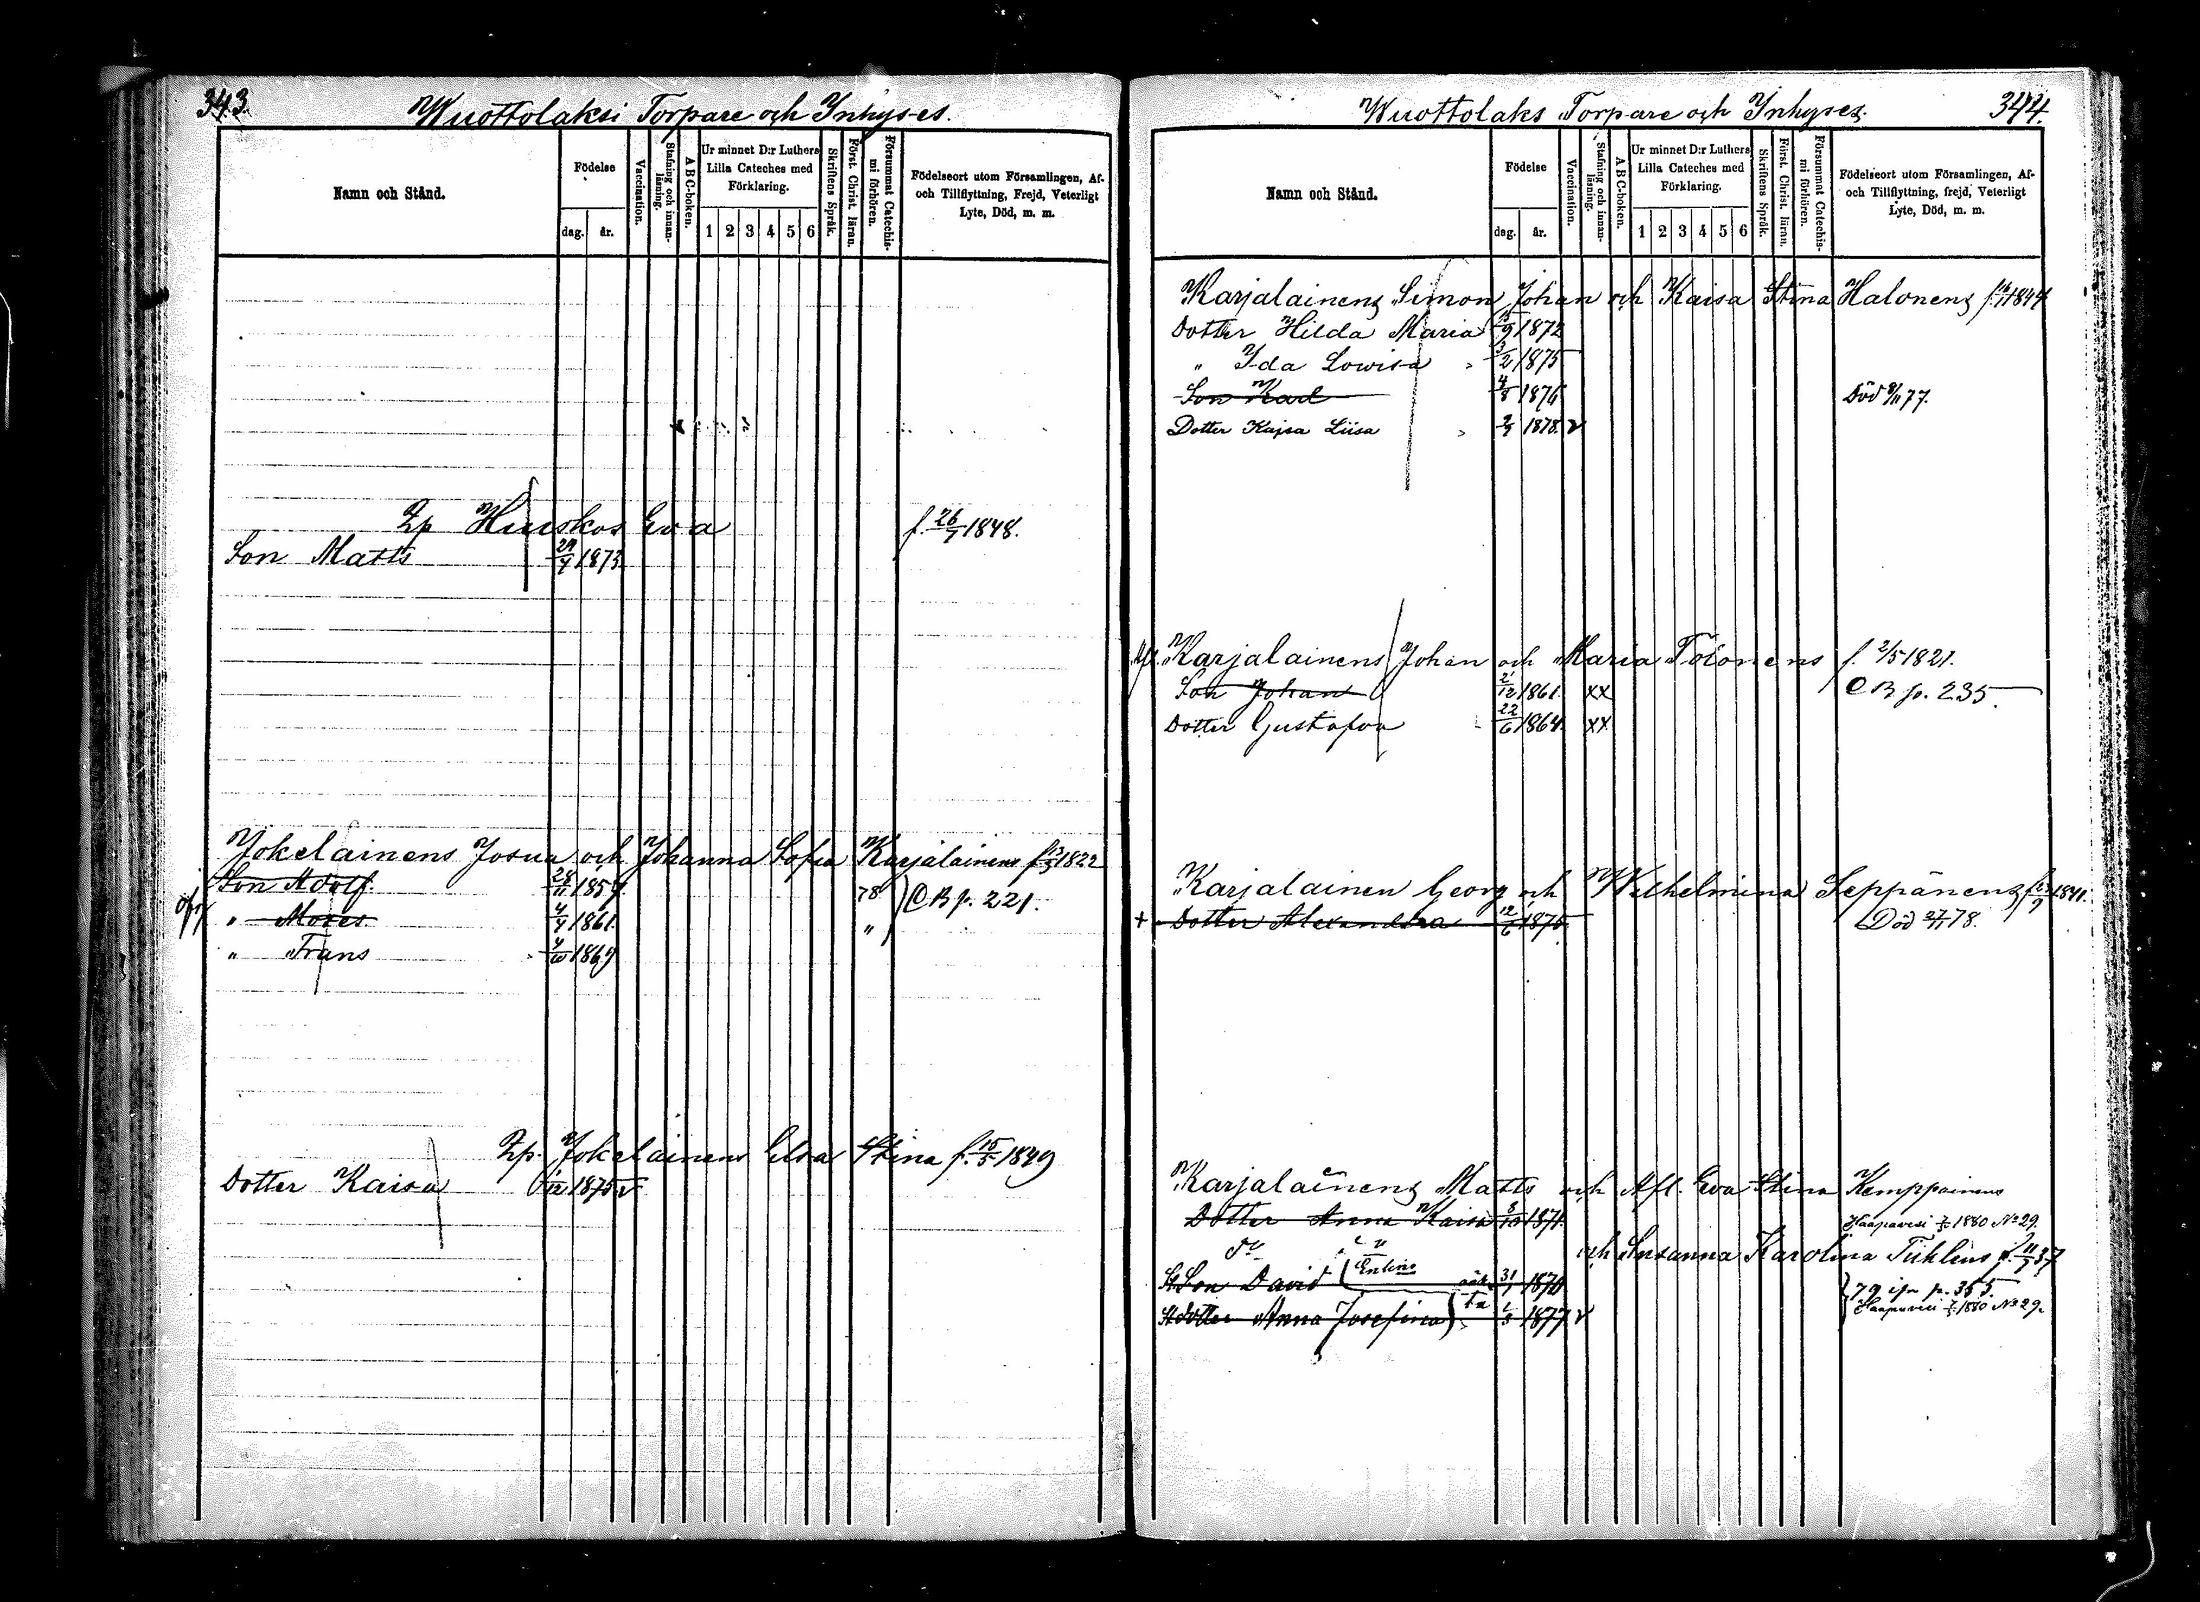 343.
Wuottolaksi Torpare och Inhyses.
Namn och Stånd.
Födelse
dag. år.
Vaccination.
Stafning och innanläsning.
ABC-boken.
Ur minnet D:r Luthers Lilla Cateches med Förklaring.
1 2 3 4 5 6
Skriftens Språk.
Först. Christ. läran.
Försummat Catechismi förhören.
Födelseort utom Församlingen, Af- och Tillflyttning, Frejd, Veterligt Lyte, Död, m. m.
Huuskos Eva f. 26/7 1848.
Son Matts 29/9 1873
Jokelainens Josua och Johanna Sofia Karjalainens f. 13/3 1822
Son Adolf. 28/11 1857. 78 CB p. 221.
" Moses. 4/9 1861. "
" Frans 4/10 1869
Jokelainens Elsa Stina f. 15/5 1849
Dotter Kaisa /12 1875 v
344.
Wuottolaks Torpare och Inhyses.
Namn och Stånd.
Födelse
dag. år.
Vaccination.
Stafning och innanläsning.
ABC-boken.
Ur minnet D:r Luthers Lilla Cateches med Förklaring.
1 2 3 4 5 6
Skriftens Språk.
Först. Christ. läran.
Försummat Catechismi förhören.
Födelseort utom Församlingen, Af- och Tillflyttning, frejd, Veterligt Lyte, Död, m. m.
Karjalainens Simon Johan och Kaisa Stina Halonens 1844
Dotter Hilda Maria 1872
" Ida Lowisa 3/2 1875
Son Karl 4/8 1876 Död 8/11 77.
Dotter Kajsa Liisa 1878. v
Karjalainens Johan och Maria Tolonens f. 2/5 1821.
Son Johan 2/12 1861. xx CB p. 235
Dotter Gustafva 22/6 1864. xx
Karjalainen Georg och Wilhelmina Seppänens 1841.
+ Dotter Alexandra 12/6 1875 Död 27/11 78.
Karjalainens Matts och Afl. Eva Stina Kemppainens
Dotter Anna Kaisa 8/10 1871. Haapavesi 1880 No 29.
och Susanna Karolina Tiihlins f. 11/9 37
St. Son David 31/1 1870 79 p. 355.
St. Dotter Anna Josefina 1877 v Haapavesi 1880 No 29.